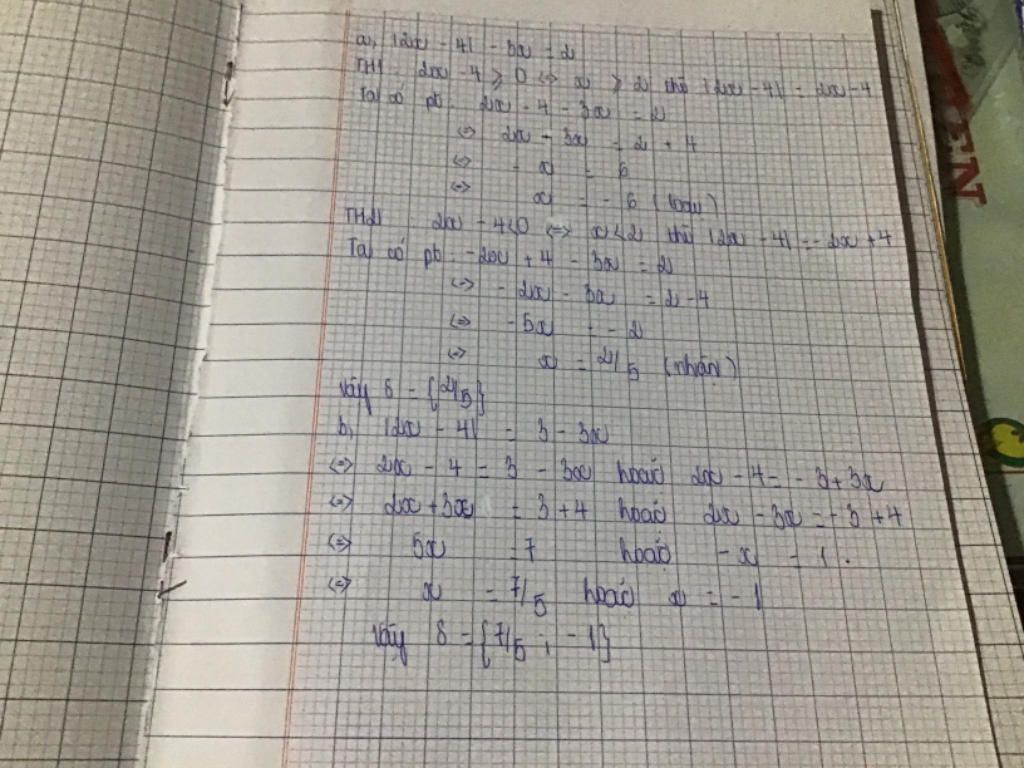 a, |2x - 4| - 3x = 2
TH1 2x - 4 ⩾ 0 <=> x ⩾ 2 thì |2x - 4| = 2x - 4
Ta có pt: 2x - 4 - 3x = 2
<=> 2x - 3x = 2 + 4
<=> - x = 6
<=> x = - 6 (loại)
TH2 2x - 4 < 0 <=> x < 2 thì |2x - 4| = - 2x + 4
Ta có pt: -2x + 4 - 3x = 2
<=> - 2x - 3x = 2 - 4
<=> -5x = - 2
<=> x = 2/5 (nhận)
Vậy S = {2/5}
b, |2x - 4| = 3 - 3x
<=> 2x - 4 = 3 - 3x hoặc 2x - 4 = - 3 + 3x
<=> 2x + 3x = 3 + 4 hoặc 2x - 3x = - 3 + 4
<=> 5x = 7 hoặc - x = 1.
<=> x = 7/5 hoặc x = - 1
Vậy S = {7/5 ; - 1}
EN